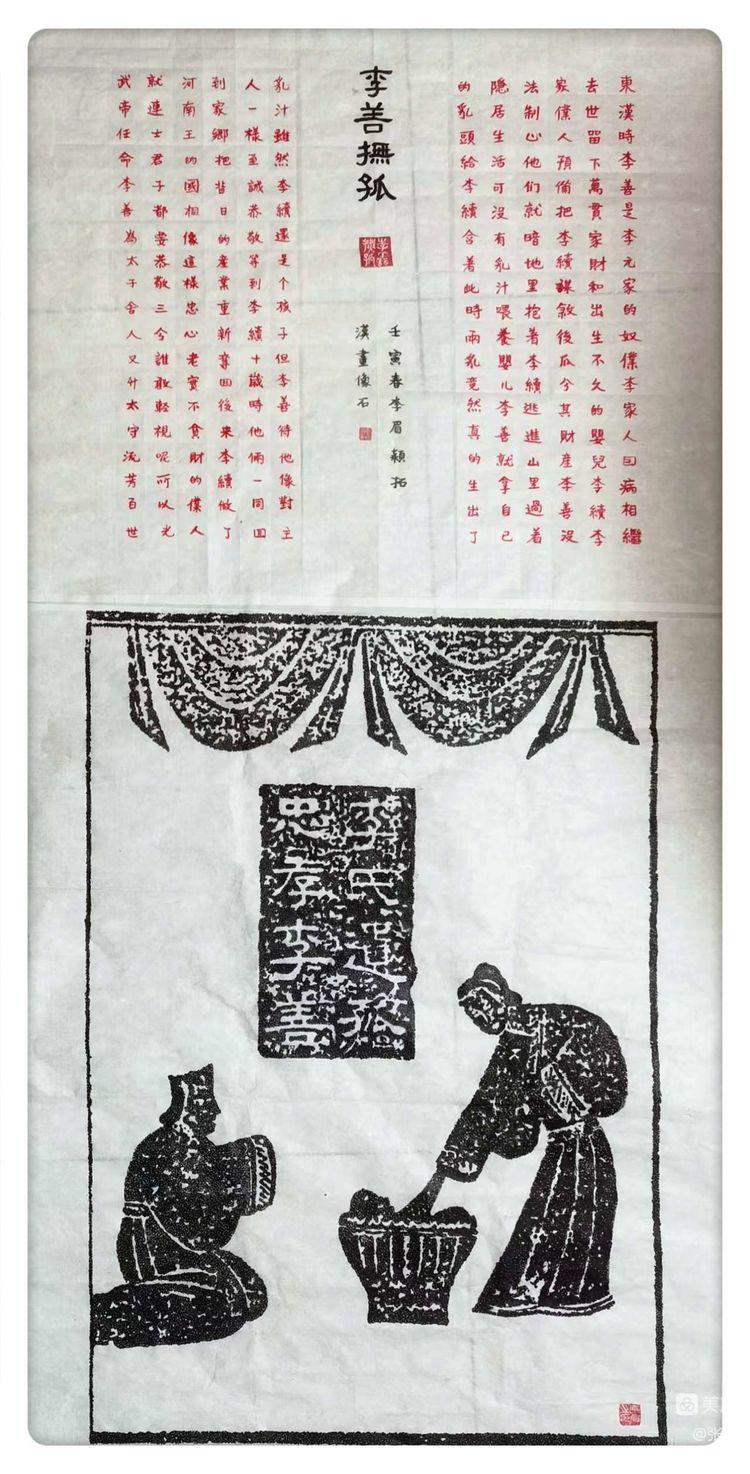 東漢時李善是李元家的奴僕李家人因病相繼
去世留下萬貫家財和出生不久的嬰兒李續李
家僕人預備把李續謀殺後瓜分其財產李善沒
法制止他们就暗地里抱着李續逃進山里過着
隐居生活可沒有乳汁喂養嬰儿李善就拿自己
的乳頭給李續含着此時兩乳竟然真的生出了
李善撫孤
壬寅春李眉颖拓
漢畫像石
乳汁雖然李續還是个孩子但李善待他像對主
人一樣至誠恭敬等到李續十歲時他倆一同回
到家鄉把昔日的產業重新奪回後来李續做了
河南王的國相像這樣忠心老實不貪財的僕人
就連士君子都要恭敬三分誰敢輕視呢所以光
武帝任命李善為太子舍人又升太守流芳百世
李氏遺孤
忠孝李善
美
@张